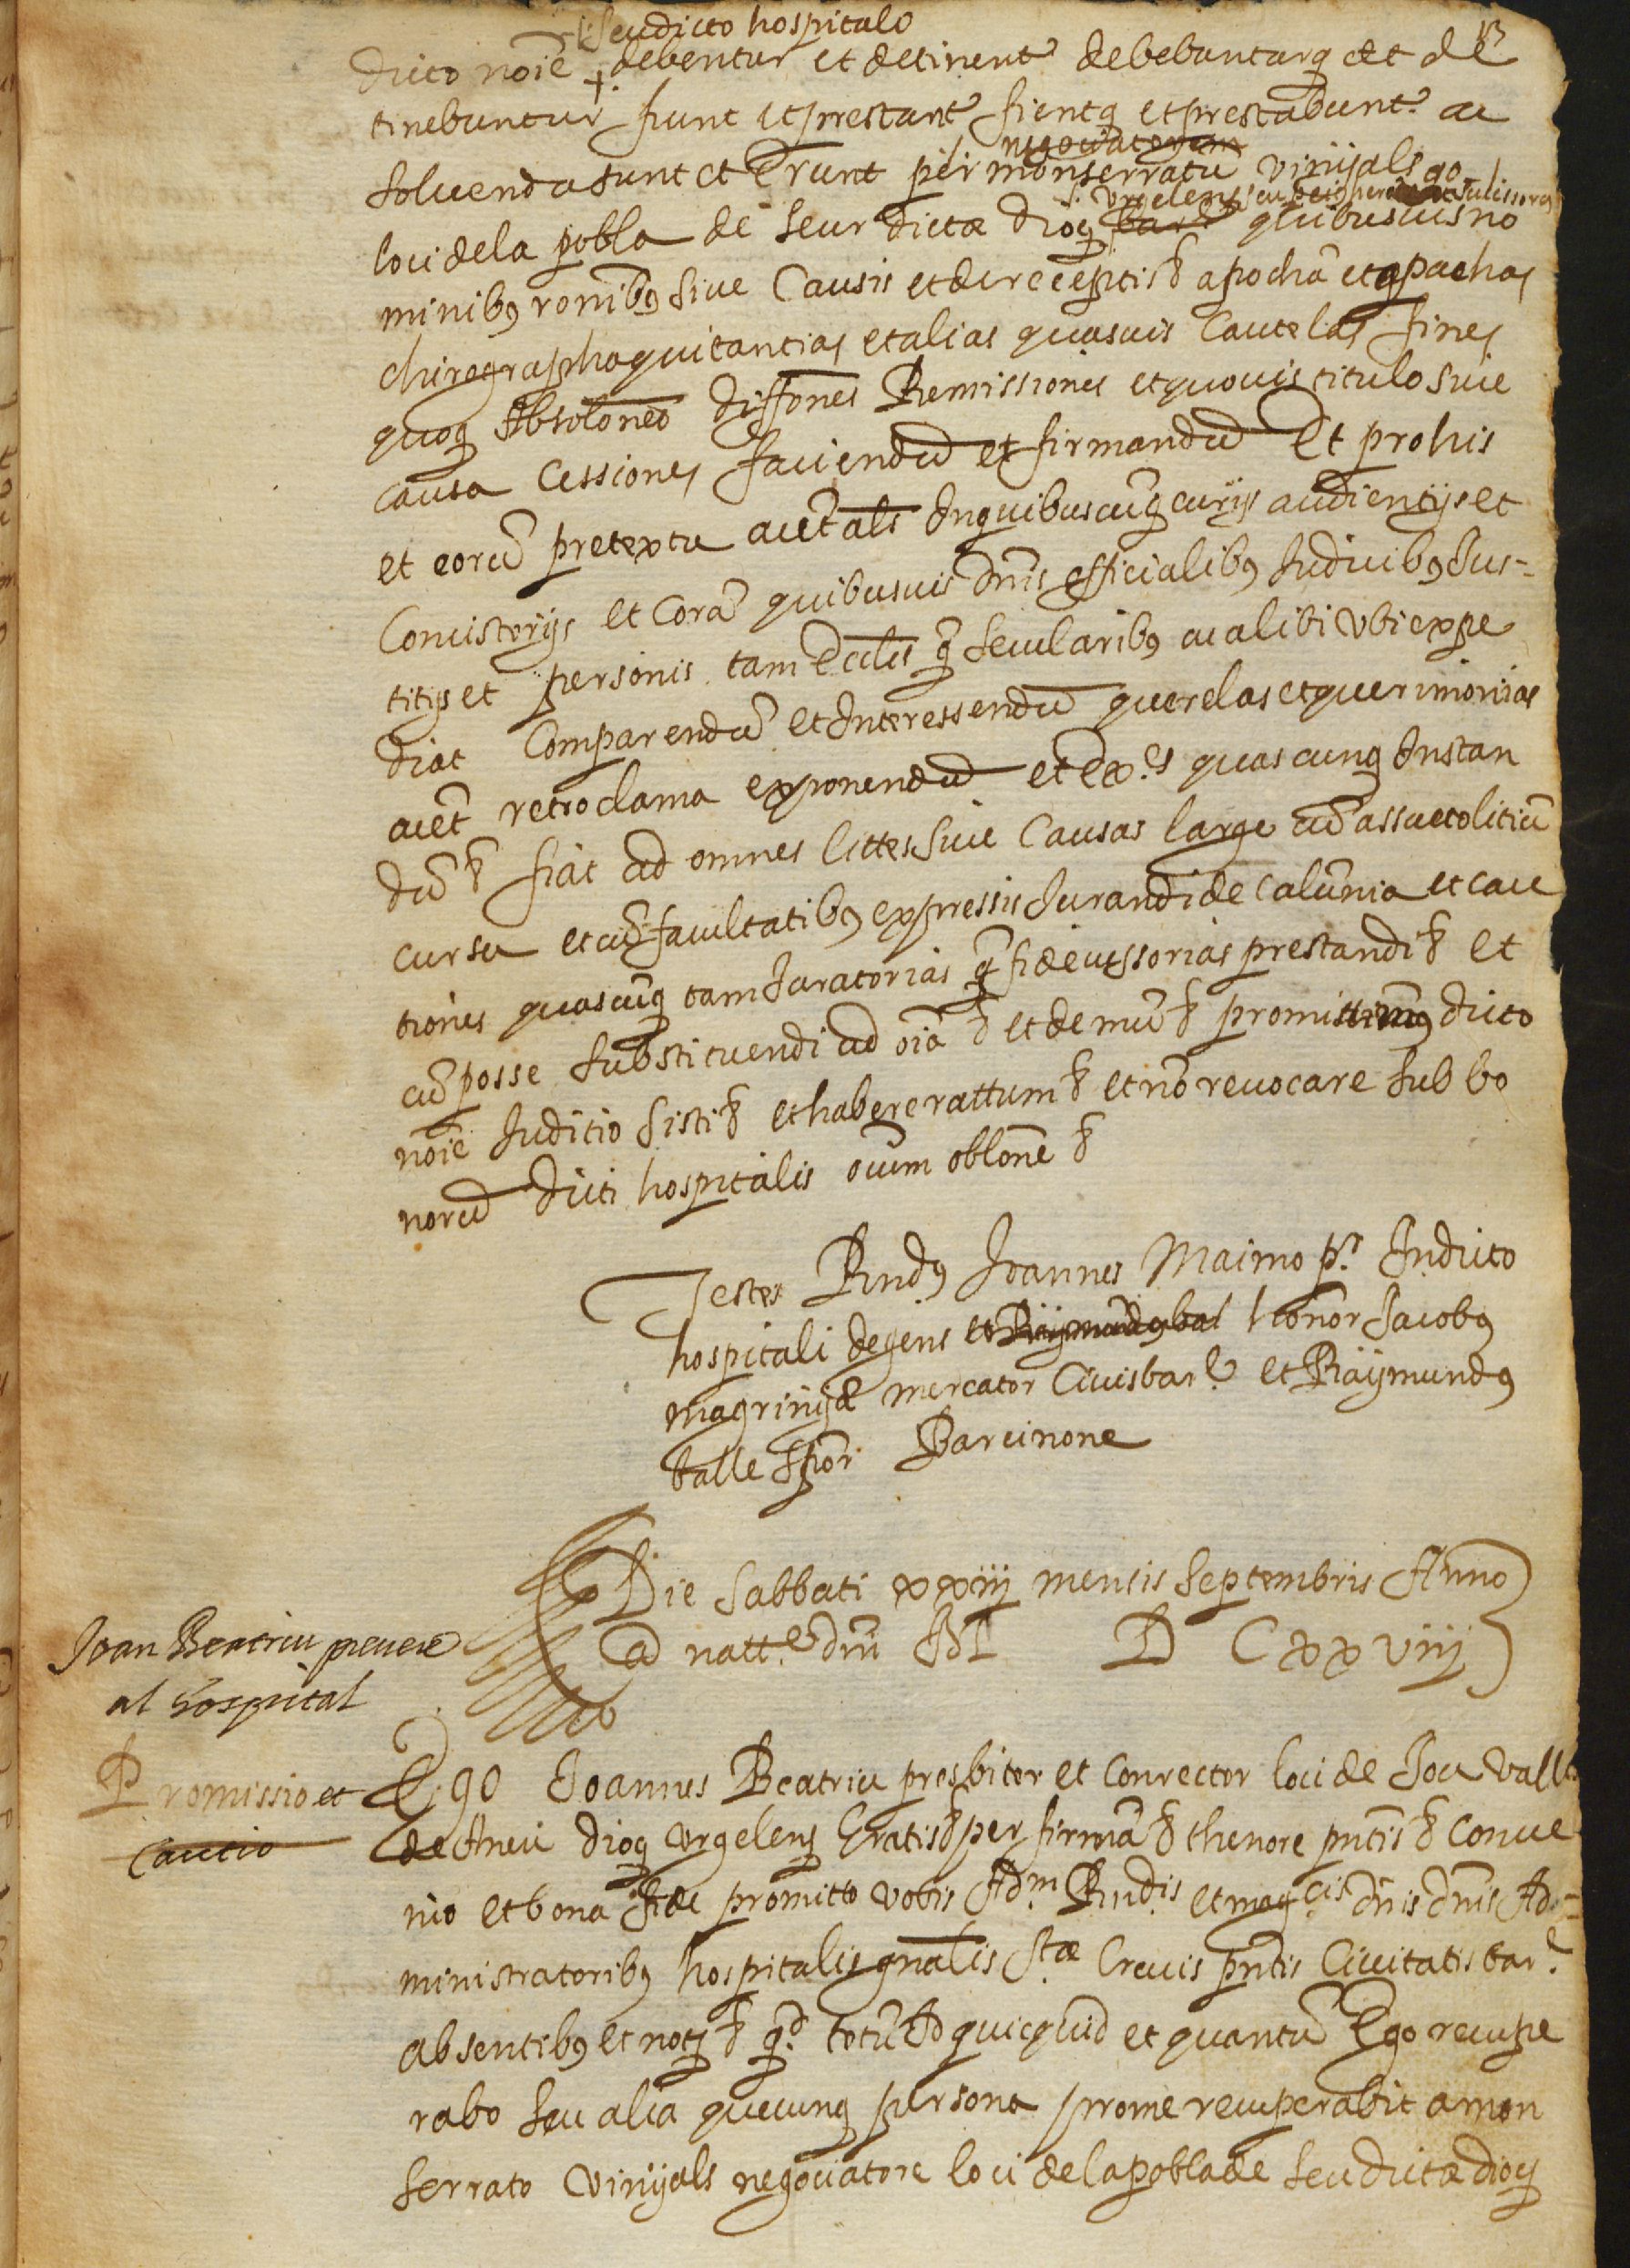 seu dicto hospitalo
dicto noīe + debentur et detinentr debebunturq et de
tinebuntur fiunt et prestantr fientq et prestabuntr ac
negociatorem
soluenda sunt et erunt per monserratū vinÿals
s. Vrgelens seu eius
loci de la pobla de seur dictæ dioq bar quibusuis no
minibq ronibq siue causis et de receptis & apochā et apachas
chirographa quitantias et alias quasuis cautelas fines
quoq absolōnes diffōnes Remissiones et quouis titulo siue
causa cessiones faciendū et firmandū Et pro his
et eorū pretextu aut als In quibuscūq curÿs audientÿs et
Concistorÿs et corā quibusuis dnīs officialibq Judicibq Jus-
titÿs et personis tam Ecclis q̄ secularibq ac alibi vbi expe
diat Comparendū et Interessendū querelas et querimonias
aut retroclama exponendū et Exes quascunq Instan
dū & fiat ad omnes littes siue causas large cū assueto litiū
cursu et cū facultatibq expressis Jurandi de calūnia et cau
tiones quascūq tam Juratorias q̄ fideiussorias prestandi & et
cū posse substituendi ad oīa & et demū & promittimq dicto
noīe Juditio sisti & et habere rattum & et nō reuocare sub bo
norū dicti hospitalis oīum oblōne &
Testes Rndq Joannes Maimo pr In dicto
hospitali degens et Raymundq bal honor Jacobq
magrinÿa mercator Ciuis bare et Raÿmundq
balle Barcinone
Die Sabbati xxiij mensis Septembris Anno
a natte dnī M D C xxviij
Joan Beatriu preuere
al hospital
Promissio et
Cautio
Ego Joannes Beatriu presbiter et conrector loci de Jou vallis
de Aneu dioq vrgelens Gratis & per firmā & thenore pntis & conue
nio et bona fide promitto vobis Adm Rndis et magcis dnīs dnīs Ad-
ministratoribq hospitalis gnalis Stæ Crucis pntis Ciuitatis bare
absentibq et notq & qd totū Id quicquid et quantū Ego recupe
rabo seu alia quecunq persona pro me recuperabit a mon
serrato vinÿals negociatore loci de la pobla de seu dictæ dioq